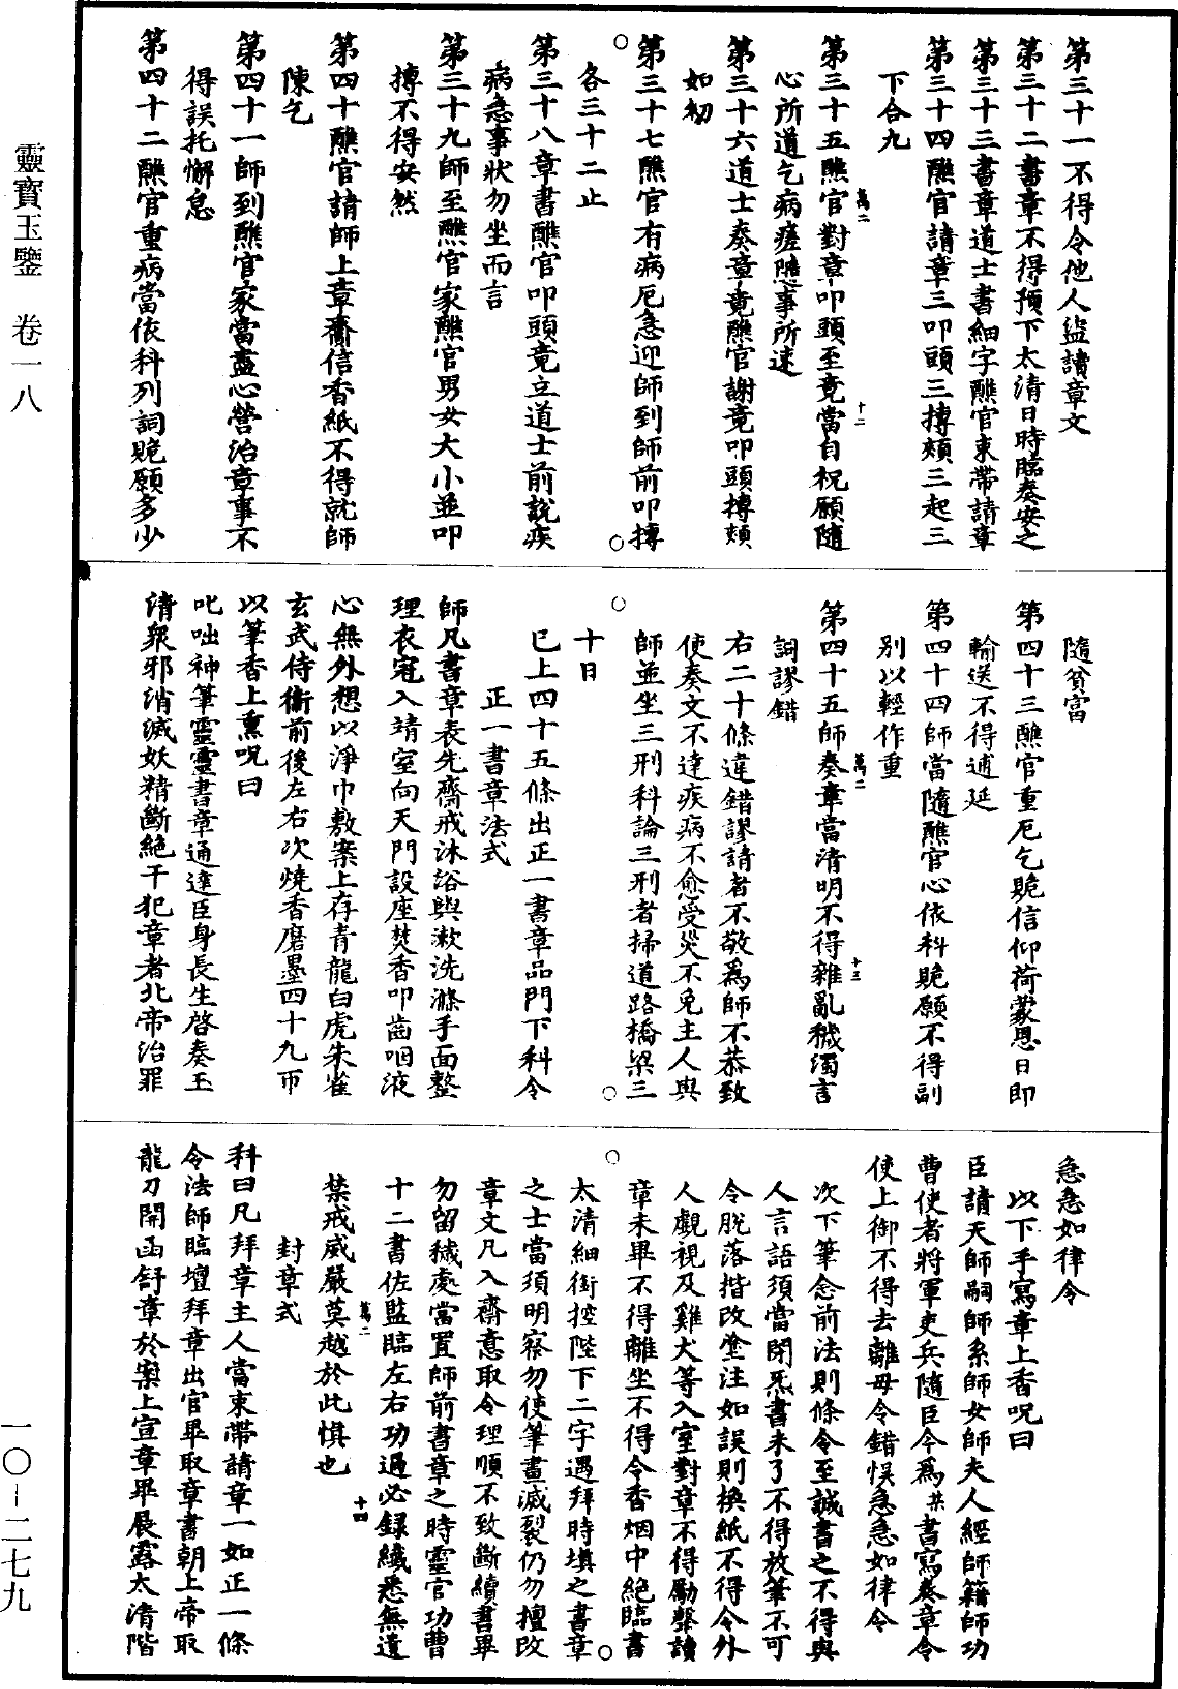 靈寶玉鑒　卷一八
一〇－二七九
第三十一不得令他人盜讀章文
第三十二書章不得預下太清日時臨奏安之
第三十三書章道士書細字醮官束帶請章
第三十四醮官請章三叩頭三搏頰三起三
下合九
第三十五醮官對章叩頭至竟當自祝願隨
心所道乞病瘥隱事所速
第三十六道士奏章竟醮官謝竟叩頭搏頰
如初
第三十七醮官有病厄急迎師到師前叩搏
各三十二止
第三十八章書醮官叩頭竟立道士前說疾
病急事狀勿坐而言
第三十九師至醮官家醮官男女大小並叩
搏不得安然
第四十醮官請師上章齎信香紙不得就師
陳乞
第四十一師到醮官家當盡心營治章事不
得誤托懈怠
第四十二醮官重病當依科列詞賧願多少
隨貧富
第四十三醮官重厄乞賧信仰荷蒙恩日即
輸送不得逋延
第四十四師當隨醮官心依科賧願不得副
別以輕作重
第四十五師奏章當清明不得雜亂穢濁言
詞謬錯
右二十條違錯謬請者不敬爲師不恭致
使奏文不達疾病不愈受災不免主人與
師並坐三刑科論三刑者掃道路橋梁三
十日
已上四十五條出正一書章品門下科令
正一書章法式
師凡書章表先齋戒沐浴與漱洗滌手面整
理衣冠入靖室向天門設座焚香叩齒咽液
心無外想以淨巾敷案上存青龍白虎朱雀
玄武侍衛前後左右次燒香磨墨四十九帀
以筆香上熏呪曰
叱咄神筆靈靈書章通達臣身長生啓奏玉
清衆邪消滅妖精斷絕干犯章者北帝治罪
急急如律令
以下手寫章上香呪曰
臣請天師嗣師系師女師夫人經師籍師功
曹使者將軍吏兵隨臣今爲某書寫奏章令
使上御不得去離毋令錯悞急急如律令
次下筆念前法則條令至誠書之不得與
人言語須當閉炁書未了不得放筆不可
令脫落揩改塗注如誤則換紙不得令外
人觀視及雞犬等入室對章不得勵聲讀
章未畢不得離坐不得令香烟中絕臨書
太清細銜控陛下二字遇拜時填之書章
之士當須明察勿使筆畫滅裂仍勿擅改
章文凡入齋意取令理順不致斷續書畢
勿留穢處當置師前書章之時靈官功曹
十二書佐監臨左右功過必録纖悉無遺
禁戒威嚴莫越於此慎也
封章式
科曰凡拜章主人當束帶請章一如正一條
令法師臨壇拜章出官畢取章書朝上帝取
龍刀開函舒章於案上宣章畢展露太清階
萬二
十二
萬二
十三
萬二
十四